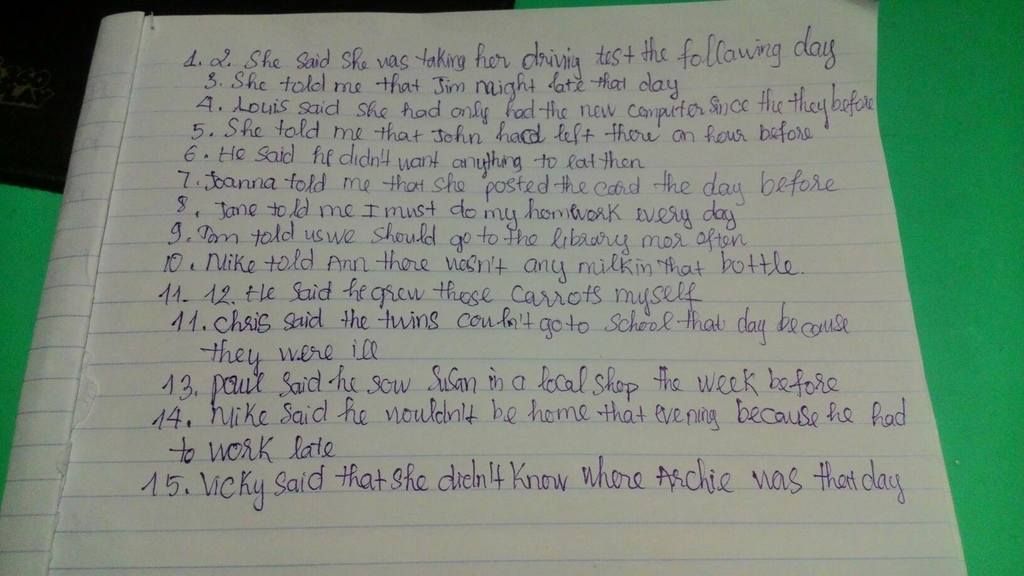 1. 2. She said she was taking her driving test the following day
3. She told me that Jim might late that day
4. Louis said she had only had the new computer since the they before
5. She told me that John had left there an hour before
6. He said he didn't want anything to eat then
7. Joanna told me that she posted the card the day before
8. Jane told me I must do my homework every day
9. Tom told us we should go to the library mor often
10. Mike told Ann there wasn't any milk in that bottle.
11- 12. He said he grew those carrots myself
11. Chris said the twins couln't go to school that day because
they were ill
13. paul said he sow Susan in a local shop the week before
14. Mike said he wouldn't be home that evening because he had
to work late
15. Vicky said that she didn't know where Archie was that day